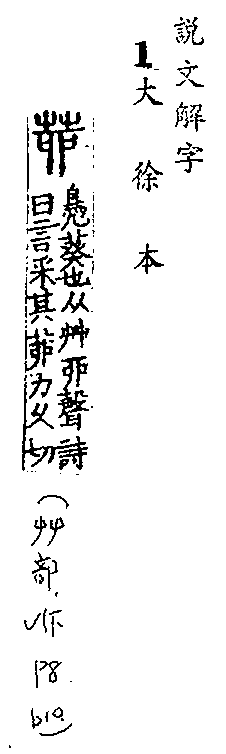 說文解字
1大徐本
茆
鳧葵也从艸丣聲詩
曰言采其茆力久切
(艸部.1下 P8. b10)